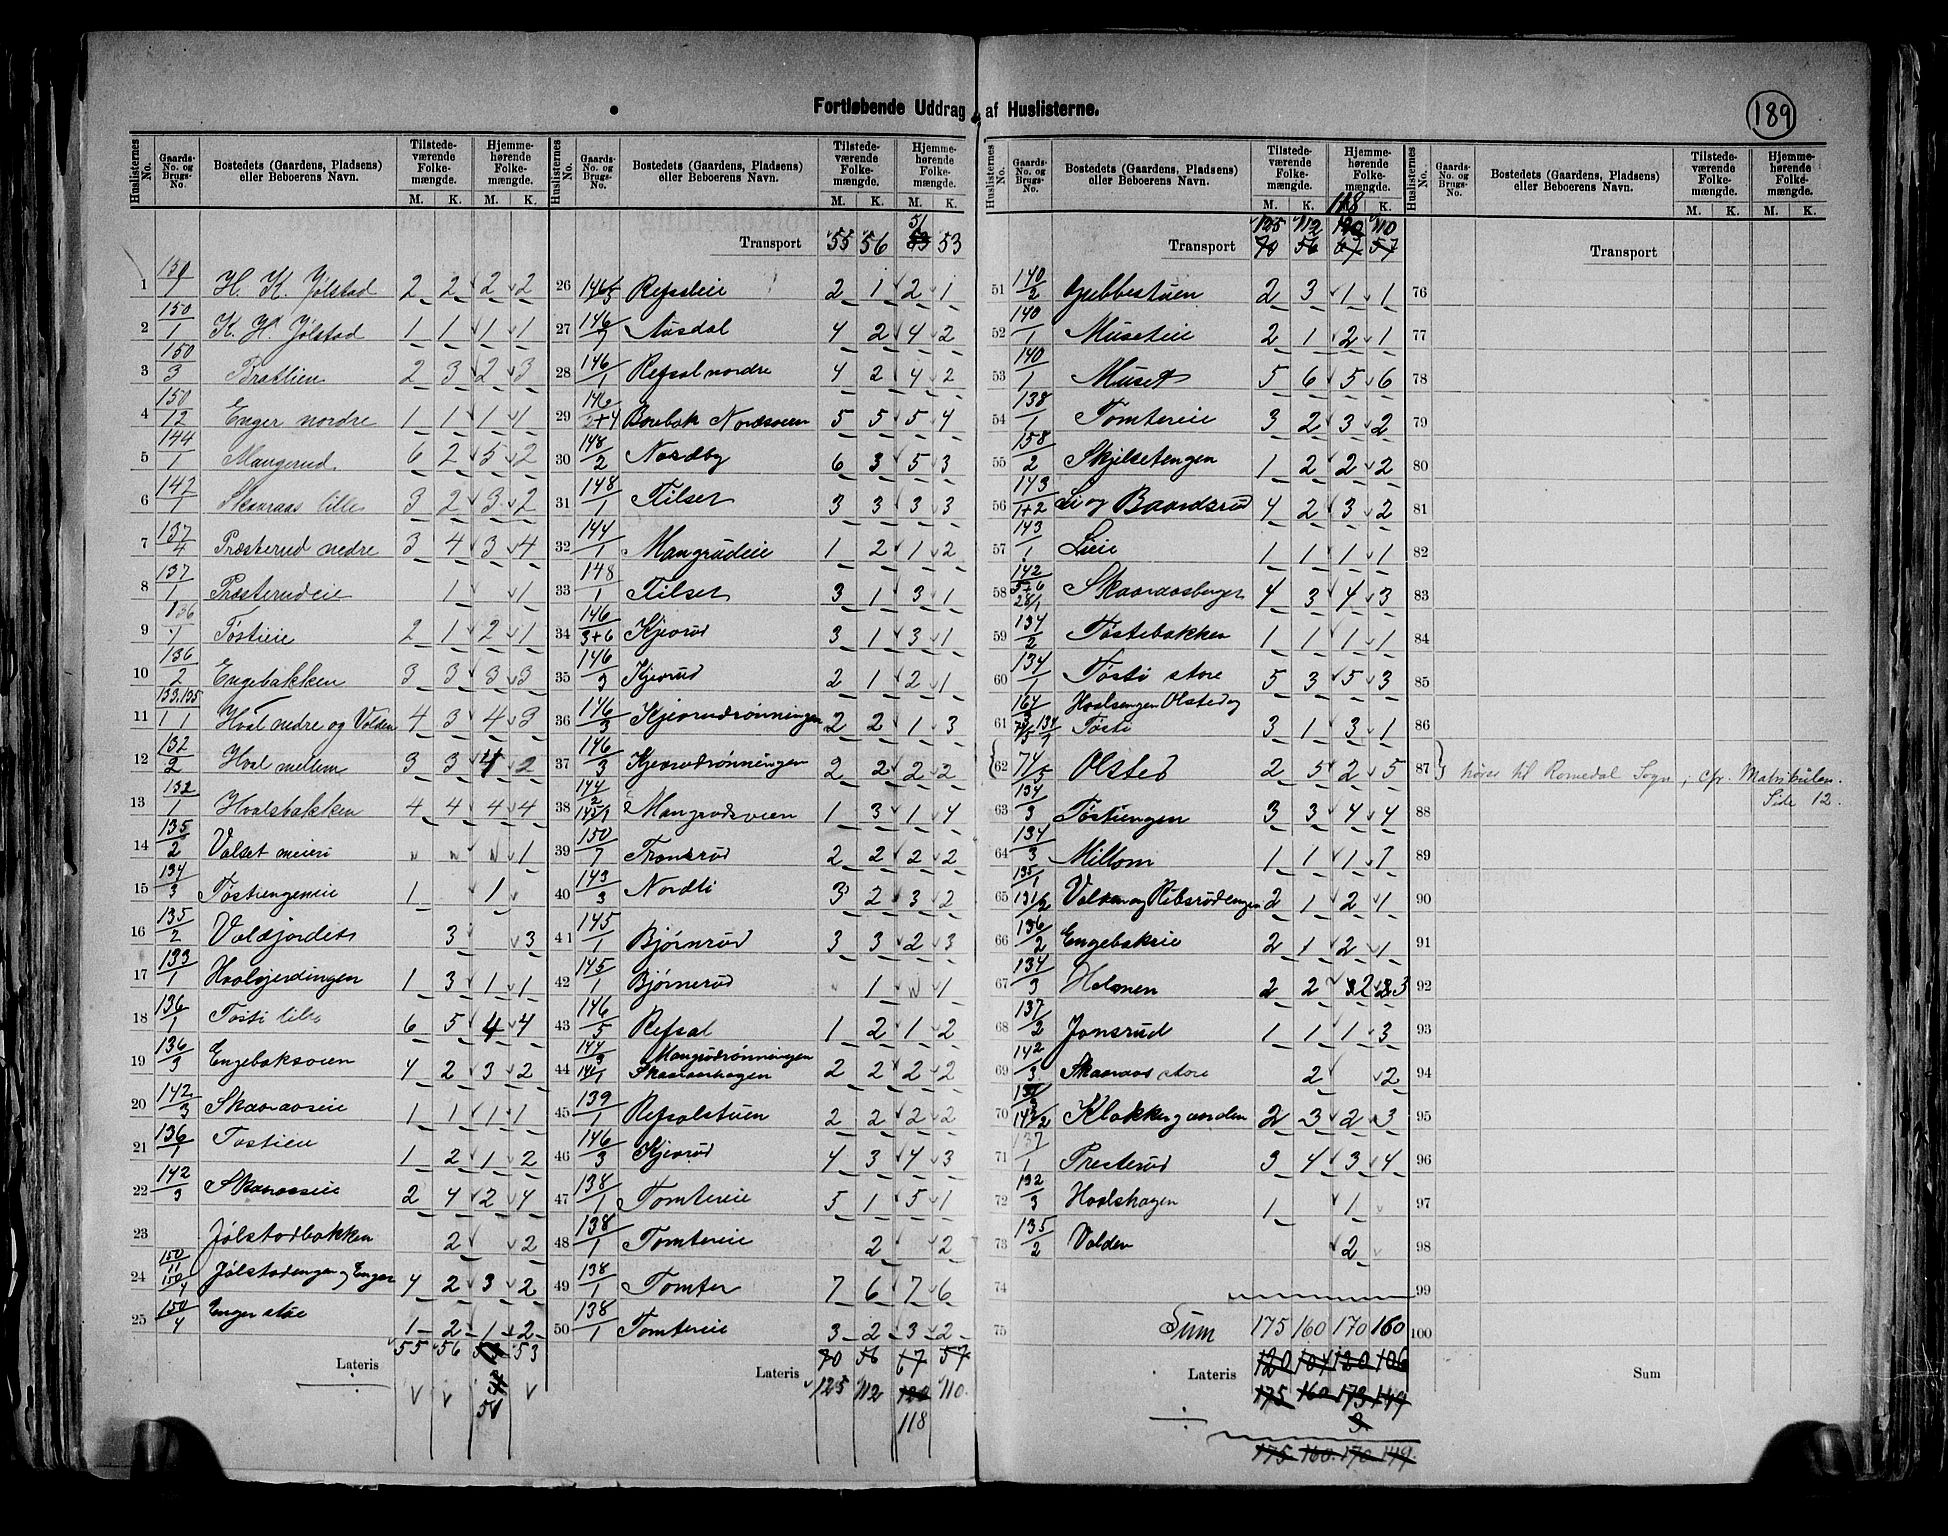 Fortløbende Uddrag af Huslisterne.
189
Huslisternes No. Gaards-No. og Brugs-No. Bostedets (Gaardens, Pladsens) eller Beboerens Navn. Tilstede-værende Folke-mængde. Hjemme-hørende Folke-mængde.
M. K. M. K.
1 150/1 H. K. Jølstad 2 2 2 2
2 150/1 K. H. Jølstad 1 1 1 1
3 150/3 Bratlien 2 3 2 3
4 150/12 Enger nordre 1 1 1 1
5 144/1 Mangerud. 6 2 5 2
6 142/1 Skaaraas lille 3 2 3 2
7 137/4 Præsterud nedre 3 4 3 4
8 137/1 Præsterudeie 1 1
9 136/1 Tøstieie 2 1 2 1
10 136/2 Engebakken 3 3 3 3
11 133.135/1 1 Hval nedre og Volden 4 3 4 3
12 132/2 Hval mellem 3 3 4 2
13 132/1 Hvalsbakken 4 4 4 4
14 135/2 Volset meieri " " " 1
15 134/3 Tøstiengeneie 1 1
16 135/2 Voldjordets 3 3
17 133/1 Hvalsjerdingen 1 3 1 1
18 136/1 Tøsti lille 6 5 4 4
19 136/3 Engebaksveen 4 2 3 2
20 142/3 Skaaraaseie 1 1 1 1
21 136/1 Tostieie 1 2 1 2
22 142/3 Skaaraaseie 2 4 2 4
23 Jølstadbakken 2 2
24 150/11 150/4 Jølstadengen og Enger 4 2 3 2
25 150/4 Enger støe 1 2 1 2
Lateris 55 56 53
51
Transport 55 56 51 53
26 146/5 Refsaleie 2 1 2 1
27 146/7 Aasdal 4 2 4 2
28 146/1 Refsal nordre 4 2 4 2
29 146/2+4 Borebak Nordsveen 5 5 5 4
30 148/2 Nordby 6 3 5 3
31 148/1 Tilset 3 3 3 3
32 144/1 Mangrudeie 1 2 1 2
33 148/1 Tilset 3 1 3 1
34 146/3+6 Kjevrud 3 1 3 1
35 146/3 Kjevrud 2 1 2 1
36 146/3 Kjevrudrønningen 2 2 1 3
37 146/3 Kjevrudrønningen 2 2 2 2
38 144/2 145/1 Mangrudsveen 1 3 1 4
39 150/7 Tronsrud 2 2 2 2
40 143/3 Nordli 3 2 3 2
41 145/1 Bjørnrud 3 3 2 3
42 145/1 Bjørnerud " 1 " 1
43 146/5 Refsal 1 2 1 2
44 144/3 141/1 Mangrudrønningen Skaaraashagen 2 2 2 2
45 139/1 Refsalstuen 2 2 2 2
46 146/3 Kjevrud 4 3 4 3
47 138/1 Tomtereie 5 1 5 1
48 138/1 Tomtereie 2 2
49 138/1 Tomter 7 6 7 6
50 138/1 Tomtereie 3 2 3 2
Lateris 70 56 67 57
125 112 120 110
118
118
125 112 120 110
Transport 70 56 67 57
51 140/2 Gubbestuen 2 3 1 1
52 140/1 Museteie 2 1 2 1
53 140/1 Muset 5 6 5 6
54 138/1 Tomtereie 3 2 3 2
55 158/2 Skjelsetengen 1 2 2 2
56 143/1+2 Li og Baardsrud 4 2 3 2
57 143/1 Lieie 1 1 1 1
58 142/5+6 28/1 Skaaraasberget 4 3 4 3
59 134/2 Tøstebakken 1 1 1 1
60 134/1 Tøsti store 5 3 5 3
61 164/3 74/5 134/1 Hvalsengen Olsted og Tøsti 3 1 3 1
62 74/5 Olsted 2 5 2 5
63 134/3 Tøstiengen 3 3 4 4
64 134/3 Millom 1 1 1 1
65 135/1 131/2 Volden og Ribsrudengen 2 1 2 1
66 136/2 Engebakeie 2 1 2 1
67 134/3 Holmen 2 2 2 3
68 137/2 Jonsrud 1 1 1 3
69 142/3 Skaaraas store 2 2
70 143/2 Klokkergaarden 2 3 2 3
71 137/1 Presterud 3 4 3 4
72 132/3 Hvalshagen 1 1
73 135/2 Volden 2
74
75 Sum 175 160 170 160
Lateris 120 104 120 106
175 160 173 149
3
175 160 170 149
Transport
76
77
78
79
80
81
82
83
84
85
86
87 hører til Romedal Sogn, cfr. Matrikulen. Side 12.
88
89
90
91
92
93
94
95
96
97
98
99
100
Sum